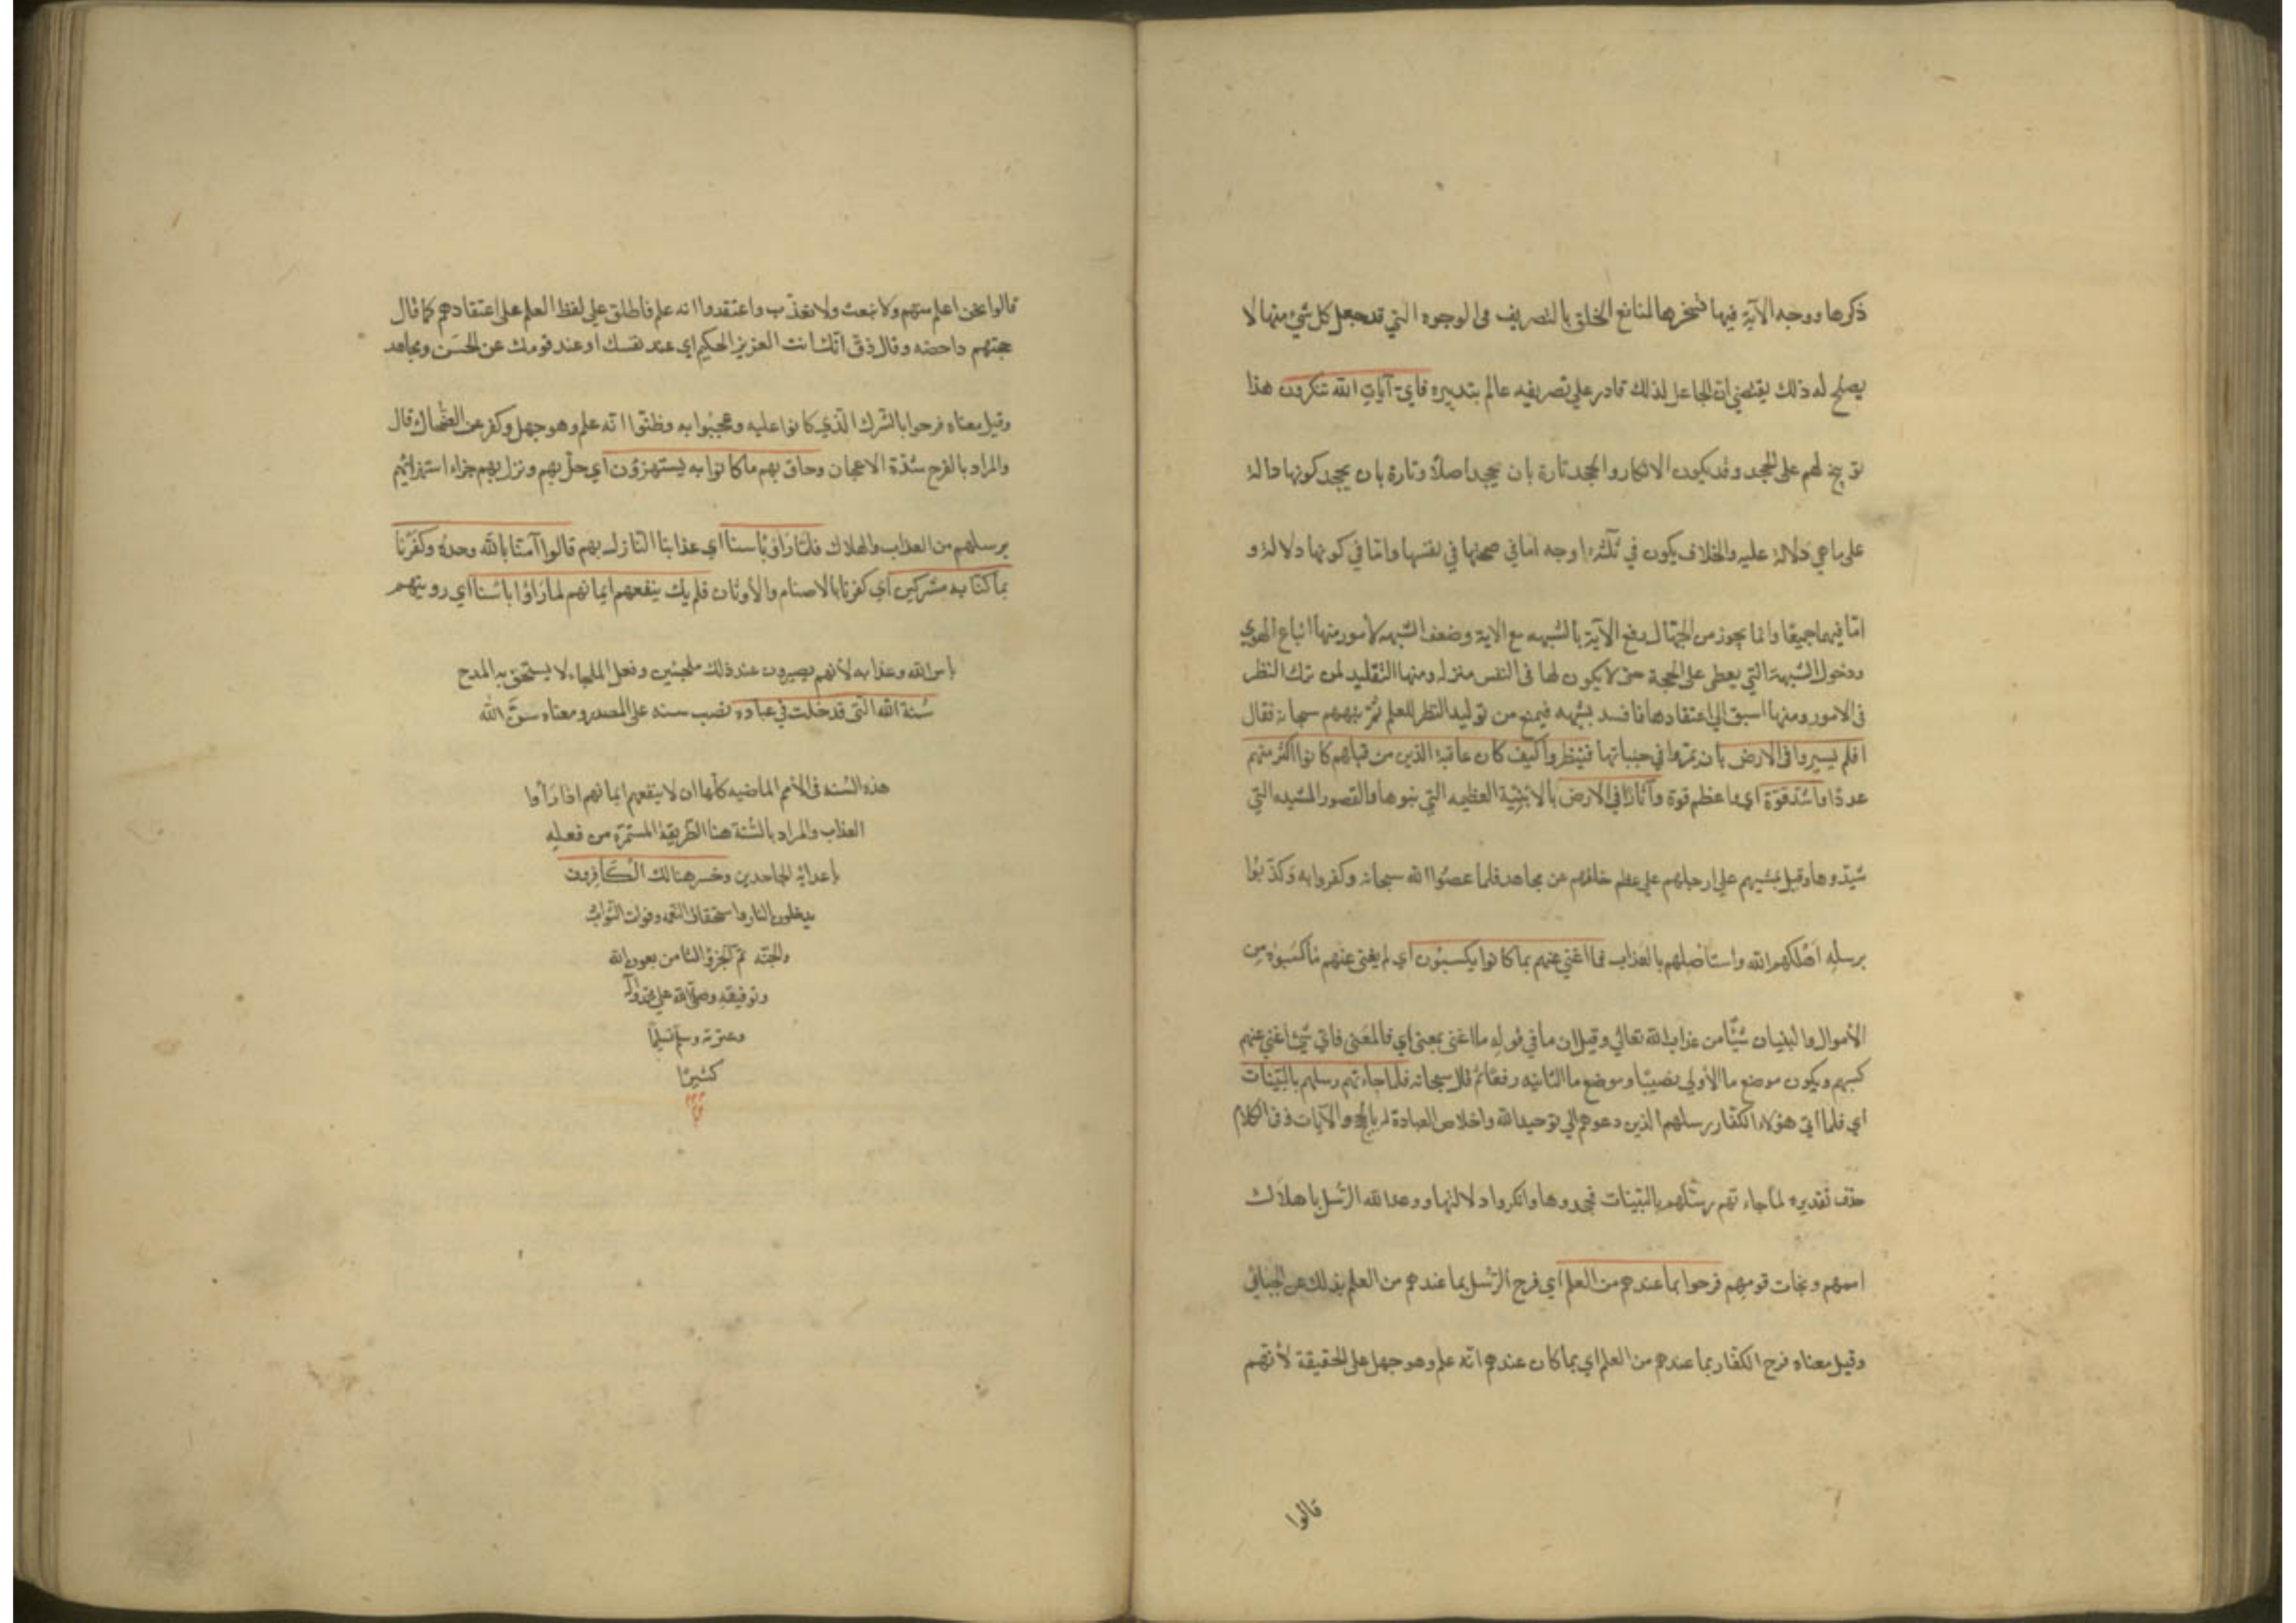 ذكرها ووجه الآية فيها تسخرها لمنافع الخلق بالتصريف في الوجوه التي قد جعل كل شيء منها لا
يصلح له ذلك يقتضي ان الجاعل لذلك قادر على تصريفه عالم بتدبيره فاي آيات الله تنكرون هذا
توبيخ لهم على الجحد وقد يكون الانكار والجحد تارة بان يجحد اصلا وتارة بان يجحد كونها دالة
على ما هي دلالة عليه والخلاف يكون في ثلثة اوجه اما في صحتها في نفسها واما في كونها دلالة و
امّا فيهما جميعًا وانما يجوز من الجهّال دفع الآية بالشبهه مع الاية وضعف الشبهه لامور منها اتباع الهوي
ودخول الشبهة التي يعطى على الحجة حتى لا يكون لها في النفس منزلة ومنها التقليد لمن ترك النظر
في الامور ومنها اسبق الي اعتقادها فاسد بشبهه فيمنع من توليد النظر للعلم ثمّ نبههم سبحانه فقال
افلم يسيروا في الارض بان يمرّوا في جنباتها فينظروا كيف كان عاقبة الذين من قبلهم كانوا اكثر منهم
عددًا واشدّ قوّة اي واعظم قوة وآثارًا في الارض بالابنية العظيمه التي بنوها والقصور المشيده التي
شيّدوها وقيل بمشيهم على ارجلهم علي عظم خلقهم عن مجاهد فلما عصوا الله سبحانه وكفروا به وكذّبوا
برسله اهلكهم الله واستأصلهم بالعذاب فما اغني عنهم بما كانوا يكسبون اي لم يغني عنهم ما كسبوه من
الأموال والبنيان شيئًا من عذاب الله تعالي وقيل ان ما في قوله ما اغنى بمعنى اي فالمعنى فاي شيء اغني عنهم
كسبهم ويكون موضع ما الأولي نصبًا وموضع ما الثانيه رفعًا ثم قال سبحانه فلما جاءتهم رسلهم بالبيّنات
اي فلما اتي هؤلاء الكفّار رسلهم الذين دعوهم الي توحيد الله واخلاص العبادة له بالحجج والآيات وفي الكلام
حذف تقديره لما جاءتهم رسلهم بالبيّنات فجحدوها وانكروا دلالتها ووعد الله الرّسل باهلاك
اممهم ونجات قومهم فرحوا بما عندهم من العلم اي فرح الرّسل بما عندهم من العلم بذلك عن الجبائي
وقيل معناه فرح الكفّار بما عندهم من العلم اي بما كان عندهم انّه علم وهو جهل على الحقيقة لأنّهم
قالوا
قالوا نحن اعلم منهم ولا نبعث ولا نعذّب واعتقدوا انه علم فاطلق علي لفظ العلم على اعتقادهم كما قال
حجتهم داحضه وقال ذق انّك انت العزيز الحكيم اي عند نفسك او عند قومك عن الحسن ومجاهد
وقيل معناه فرحوا بالشّرك الّذي كانوا عليه وعجبوا به وظنّوا انّه علم وهو جهل وكفر عن الضّحاك قال
والمراد بالفرح شدّة الاعجاب وحاق بهم ما كانوا به يستهزؤن اي حلّ بهم ونزل بهم جزاء استهزائهم
برسلهم من العذاب والهلاك فلمّا رأوا بأسنا اي عذابنا النازل بهم قالوا آمنّا بالله وحده وكفرنا
بما كنّا به مشركين اي كفرنا بالاصنام والأوثان فلم يك ينفعهم ايمانهم لما رأوا بأسنا اي رويتهم
بأس الله وعذابه لأنهم يصيرون عند ذلك ملجئين وفعل الملجاء لا يستحق به المدح
سُنة الله الّتي قد خلت في عباده نصب سنه على المصدر ومعناه سنّ الله
هذه السّنه في الأمم الماضيه كلّها ان لا ينفعهم ايمانهم اذا رأوا
العذاب والمراد بالسّنة هنا الطريقة المستمرّة من فعله
بأعدائه الجاحدين وخسر هنالك الكافرون
بدخلون النار واستحقاق النّقمه وفوات الثّواب
والجنّه تمّ الجزؤ الثامن بعون الله
وتوفيقه وصلّى الله علي محمّد وآله
وعترته وسلّم تسليمًا
كثيرًا